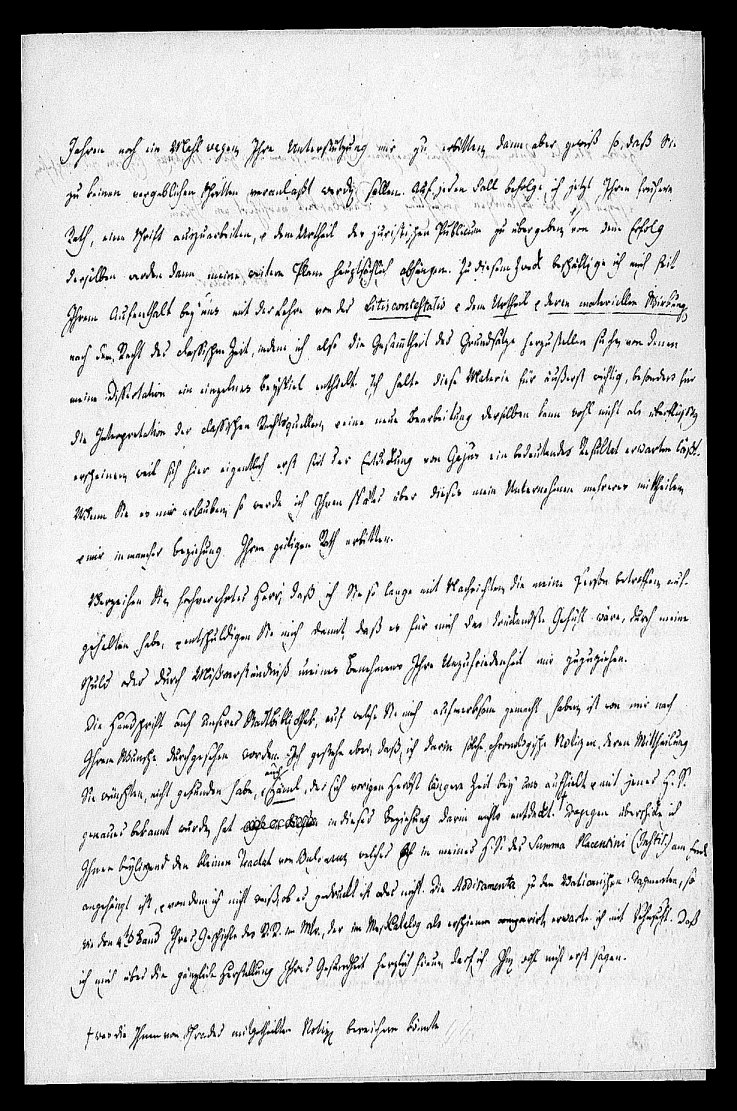 Jahren noch ein Mahl wegen Ihre Unterstützung mir zu erbitten, dann aber gewiß so, daß Sie
zu keinen vergeblichen Schritten veranlaßt werden sollen. Auf jeden Fall befolge ich jetzt Ihren frühern
Rath, eine Schrift auszuarbeiten, u dem Urtheil des juristischen Publicum zu übergeben, von dem Erfolg
derselben werden dann meine weitern Plane hauptsächlich abhängen. Zu diesem Zweck beschäftige ich mich seit
Ihrem Aufenthalt bey uns mit der Lehre von der Litiscontestatio u dem Urtheil u deren materiellen Wirkung,
nach dem Recht der classischen Zeit, indem ich also die Gesamtheit der Grundsätze herzustellen suche, von denen
meine Dissertation ein einzelnes Beyspiel enthielt. Ich halte diese Materie für äußerst wichtig, besonders für
die Interpretation der classischen Rechtsquellen, u eine neue Bearbeitung derselben kann wohl nicht als überflüssig
erscheinen, weil sich hier eigentlich erst seit der Entdeckung von Gajus ein bedeutendes Resultat erwarten läßt.
Wenn Sie es mir erlauben, so werde ich Ihnen später über dieses mein Unternehmen mehreres mittheilen,
u mir in mancher Beziehung Ihren gütigen Rath erbitten.
Verzeihen Sie, hochverehrter Herr, daß ich Sie so lange mit Nachrichten, die meine Person betreffen, auf-
gehalten habe, u entschuldigen Sie mich damit, daß es für mich das drückendste Gefühl wäre, durch meine
Schuld oder durch Mißverständniß meines Benehmens Ihre Unzufriedenheit mir zuzuziehen.
Die Handschrift auf unserer Stadtbibliothek, auf welche Sie mich aufmerksam gemacht haben, ist von mir nach
Ihrem Wunsche durchgesehen worden. Ich gestehe aber, daß ich darin solche chronologische Notizen, deren Mittheilung
Sie wünschten, nicht gefunden habe, u auch Hänel, der sich vorigen Herbst längere Zeit bey uns aufhielt u mit jener H.S.
genauer bekannt wurde, hat in dieser Beziehung darin nichts entdeckt. † Dagegen überschicke ich
Ihnen beyliegend den kleinen Tractat von welches ich in meiner H.S. der Summa Placentini (Instit.) am Ende
angehängt ist, u von dem ich nicht weiß, ob er gedruckt ist oder nicht. Die Additamenta zu den Vaticanischen Fragmenten, so
wie den 4t. Band Ihrer Geschichte des R.R. im M., der im Meßkatalog als erschienen erwarte ich mit Sehnsucht. Daß
ich mich über die gänzliche Herstellung Ihrer Gesundheit herzlich freue, darf ich Ihnen wohl nicht erst sagen.
† was die Ihnen von Schrader mitgetheilten Notizen bereichern könnte